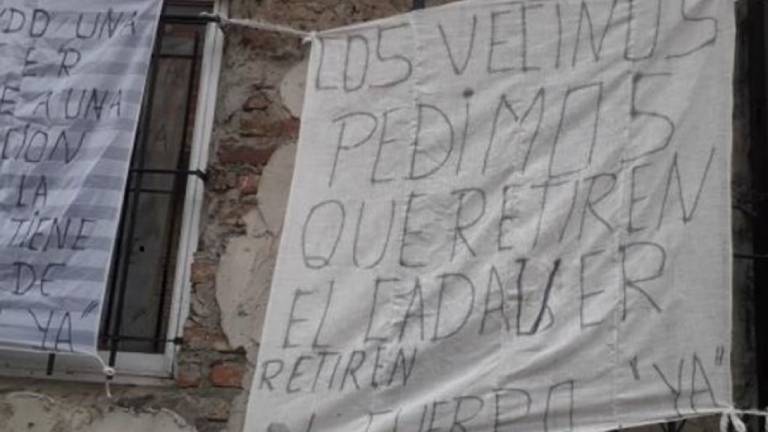 UNA
ER
E A UNA
CION
LA
TIENE
DE
YA"
LOS VECINOS
PEDIMOS
QUE RETIREN
EL CADAVER
RETIREN
CUERPO "YA"